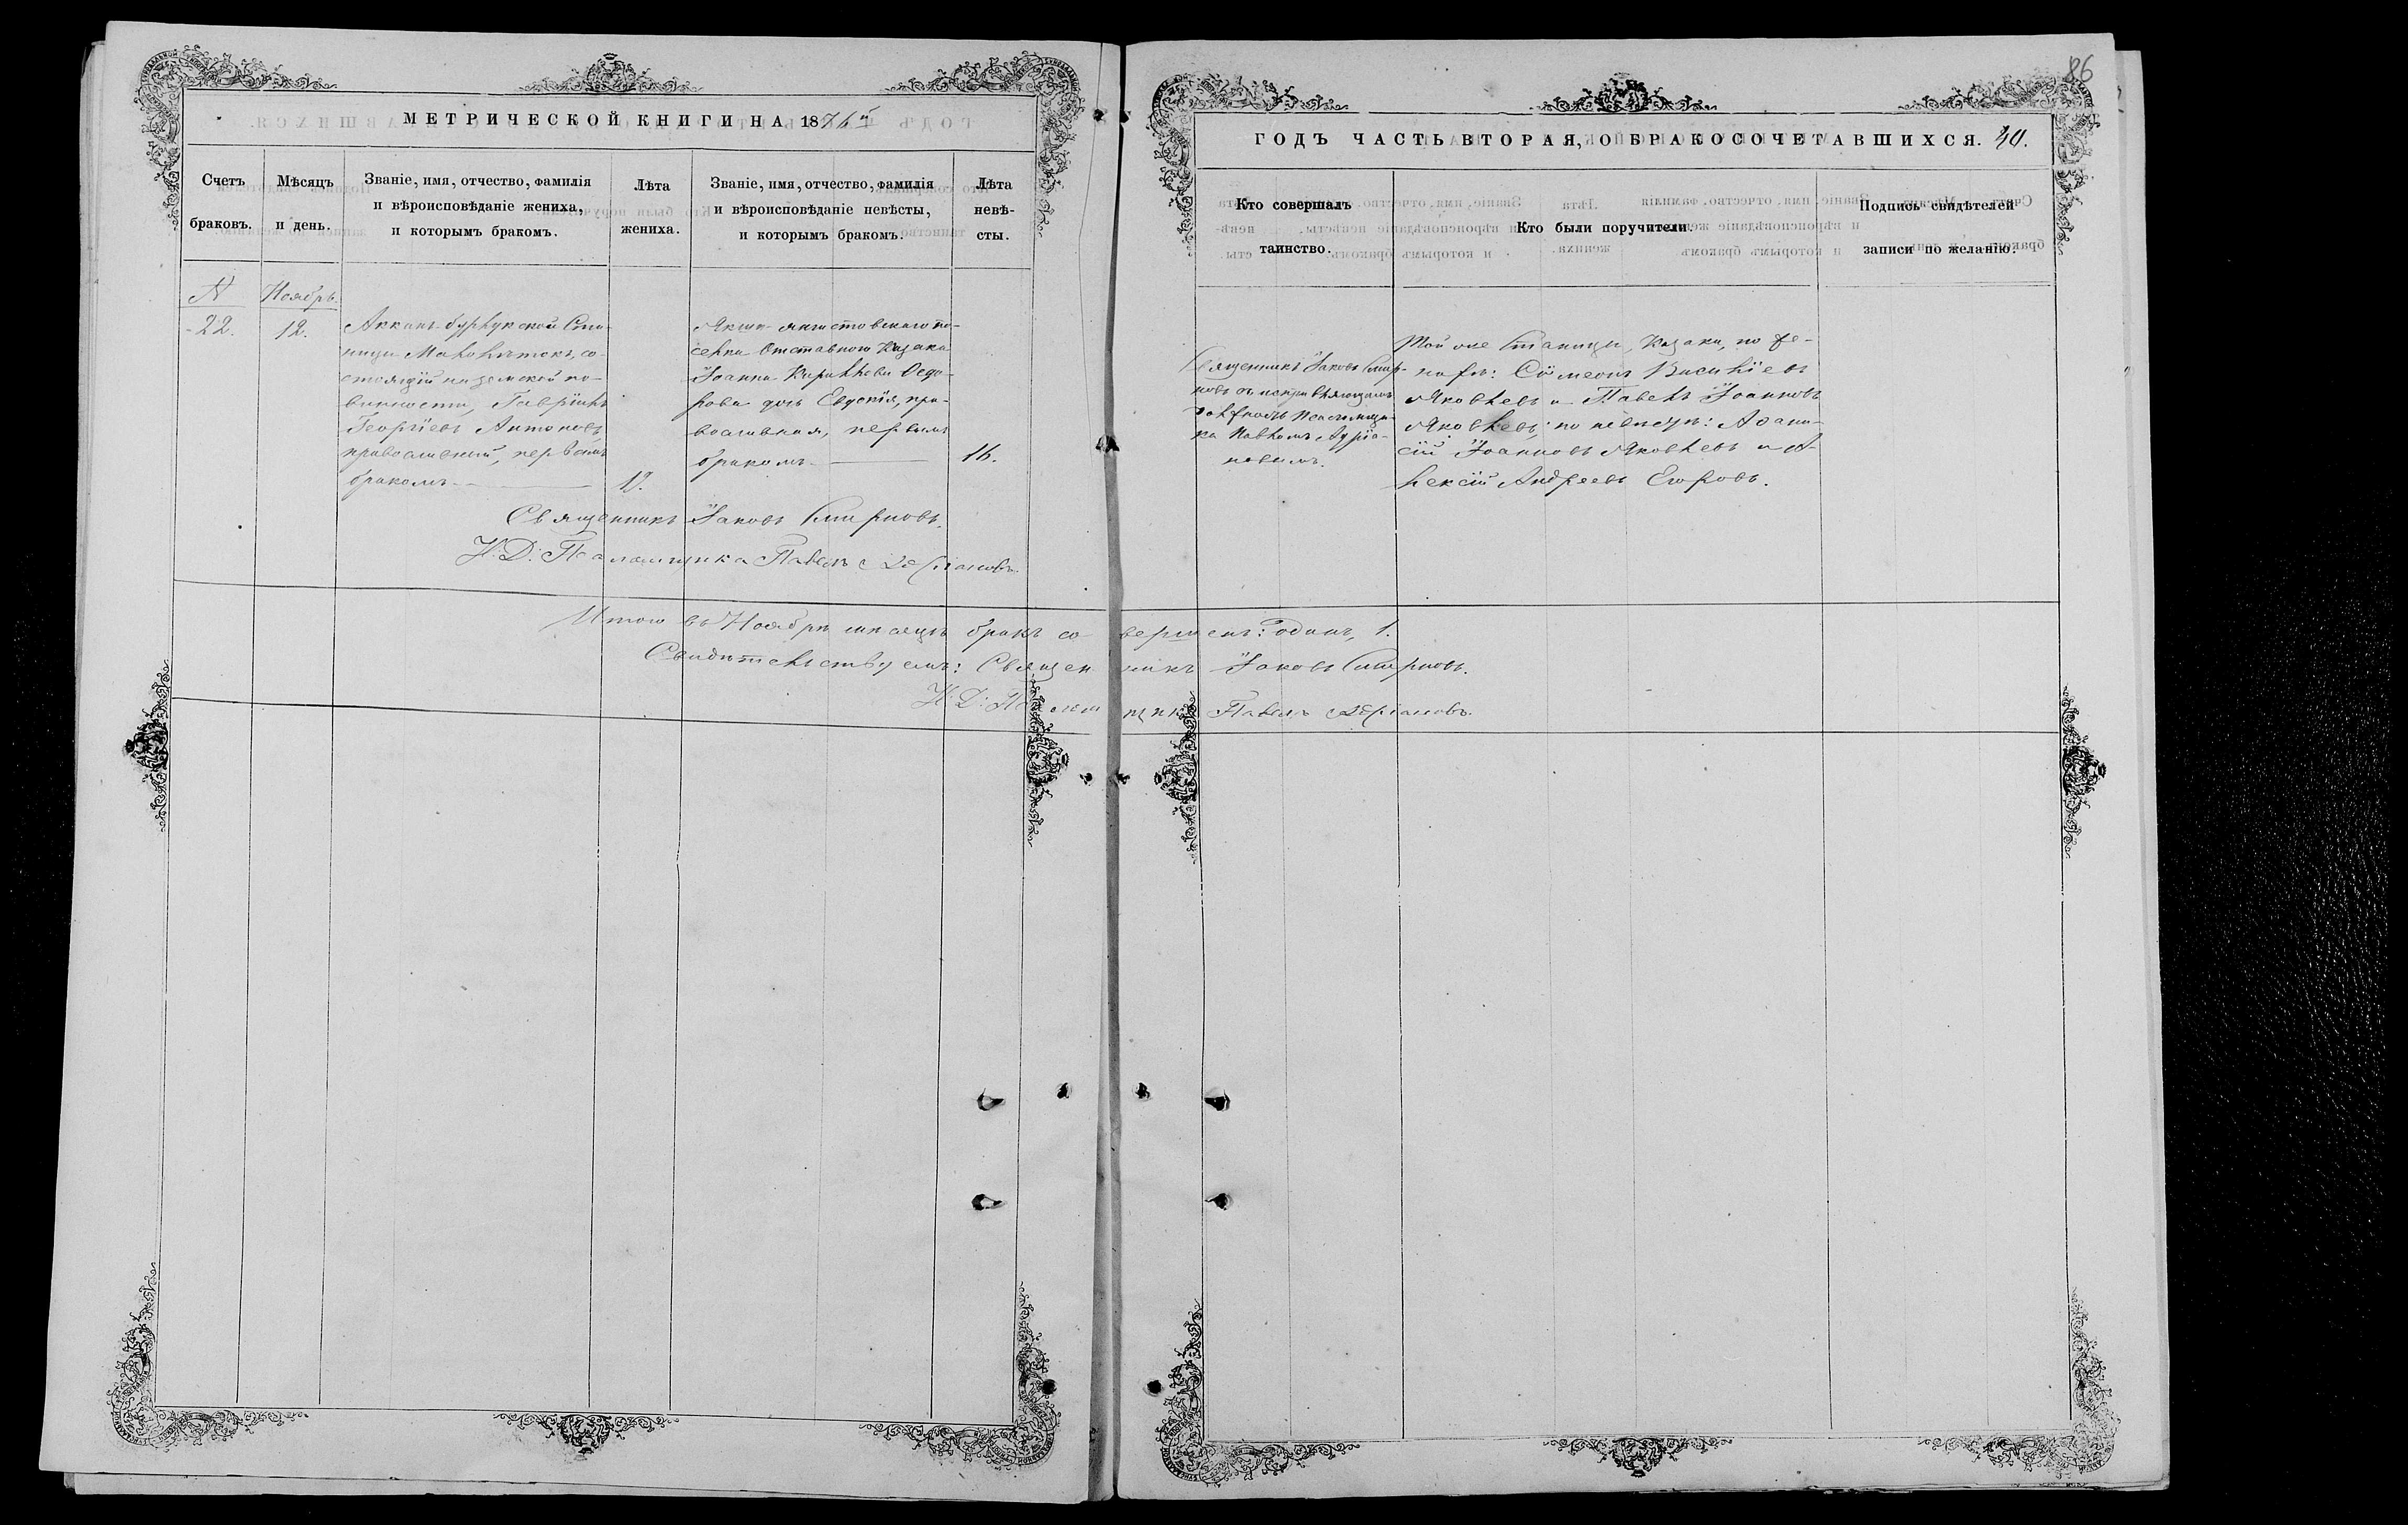 86
МЕТРИЧЕСКОЙ КНИГИ НА 1876й
ГОДЪ ЧАСТЬ ВТОРАЯ, О БРАКОСОЧЕТАВШИХСЯ. 40.
Счетъ браковъ.
Мѣсяцъ и день.
Званіе, имя, отчество, фамилія
и вѣроисповѣданіе жениха,
и которымъ бракомъ.
Лѣта
жениха.
Званіе, имя, отчество, фамилія
и вѣроисповѣданіе невѣсты,
и которымъ бракомъ.
Лѣта
невѣ-
сты.
Кто совершалъ
таинство.
Кто были поручители.
Подпись свидѣтелей
записи по желанію.
N
Ноябрь.
22.
12.
Стa-
ницы Малолѣтокъ, со-
стоящій на земской по-
винности, Гавріилъ
Георгіевъ Антоновъ
православный, первымъ
бракомъ
19.
по-
селка Отставнаго Казака
Іоанна Кириллова Ѳедо-
рова дочь Евдокія, пра-
вославная, первымъ
бракомъ
16.
Священникъ Іаковъ Смир-
новъ съ исправляющимъ
должность Псаломщи-
ка Павломъ Адріа-
новымъ.
Той же Станицы, Казаки, по же-
нихѣ: Сѵмеонъ Васильевъ
Яковлевъ и Павелъ Іоанновъ
Яковлевъ; по невѣстѣ: Аѳана-
сій Іоанновъ Яковлевъ и А-
лексѣй Андреевъ Егоровъ.
Священникъ Іаковъ Смирновъ.
И. Д. Псаломщика Павелъ Адріановъ.
Итого въ Ноябрѣ мѣсяцѣ бракъ совершенъ: одинъ, 1.
Свидѣтельствуемъ: Священникъ Іаковъ Смирновъ.
И. Д. Псаломщика Павелъ Адріановъ.